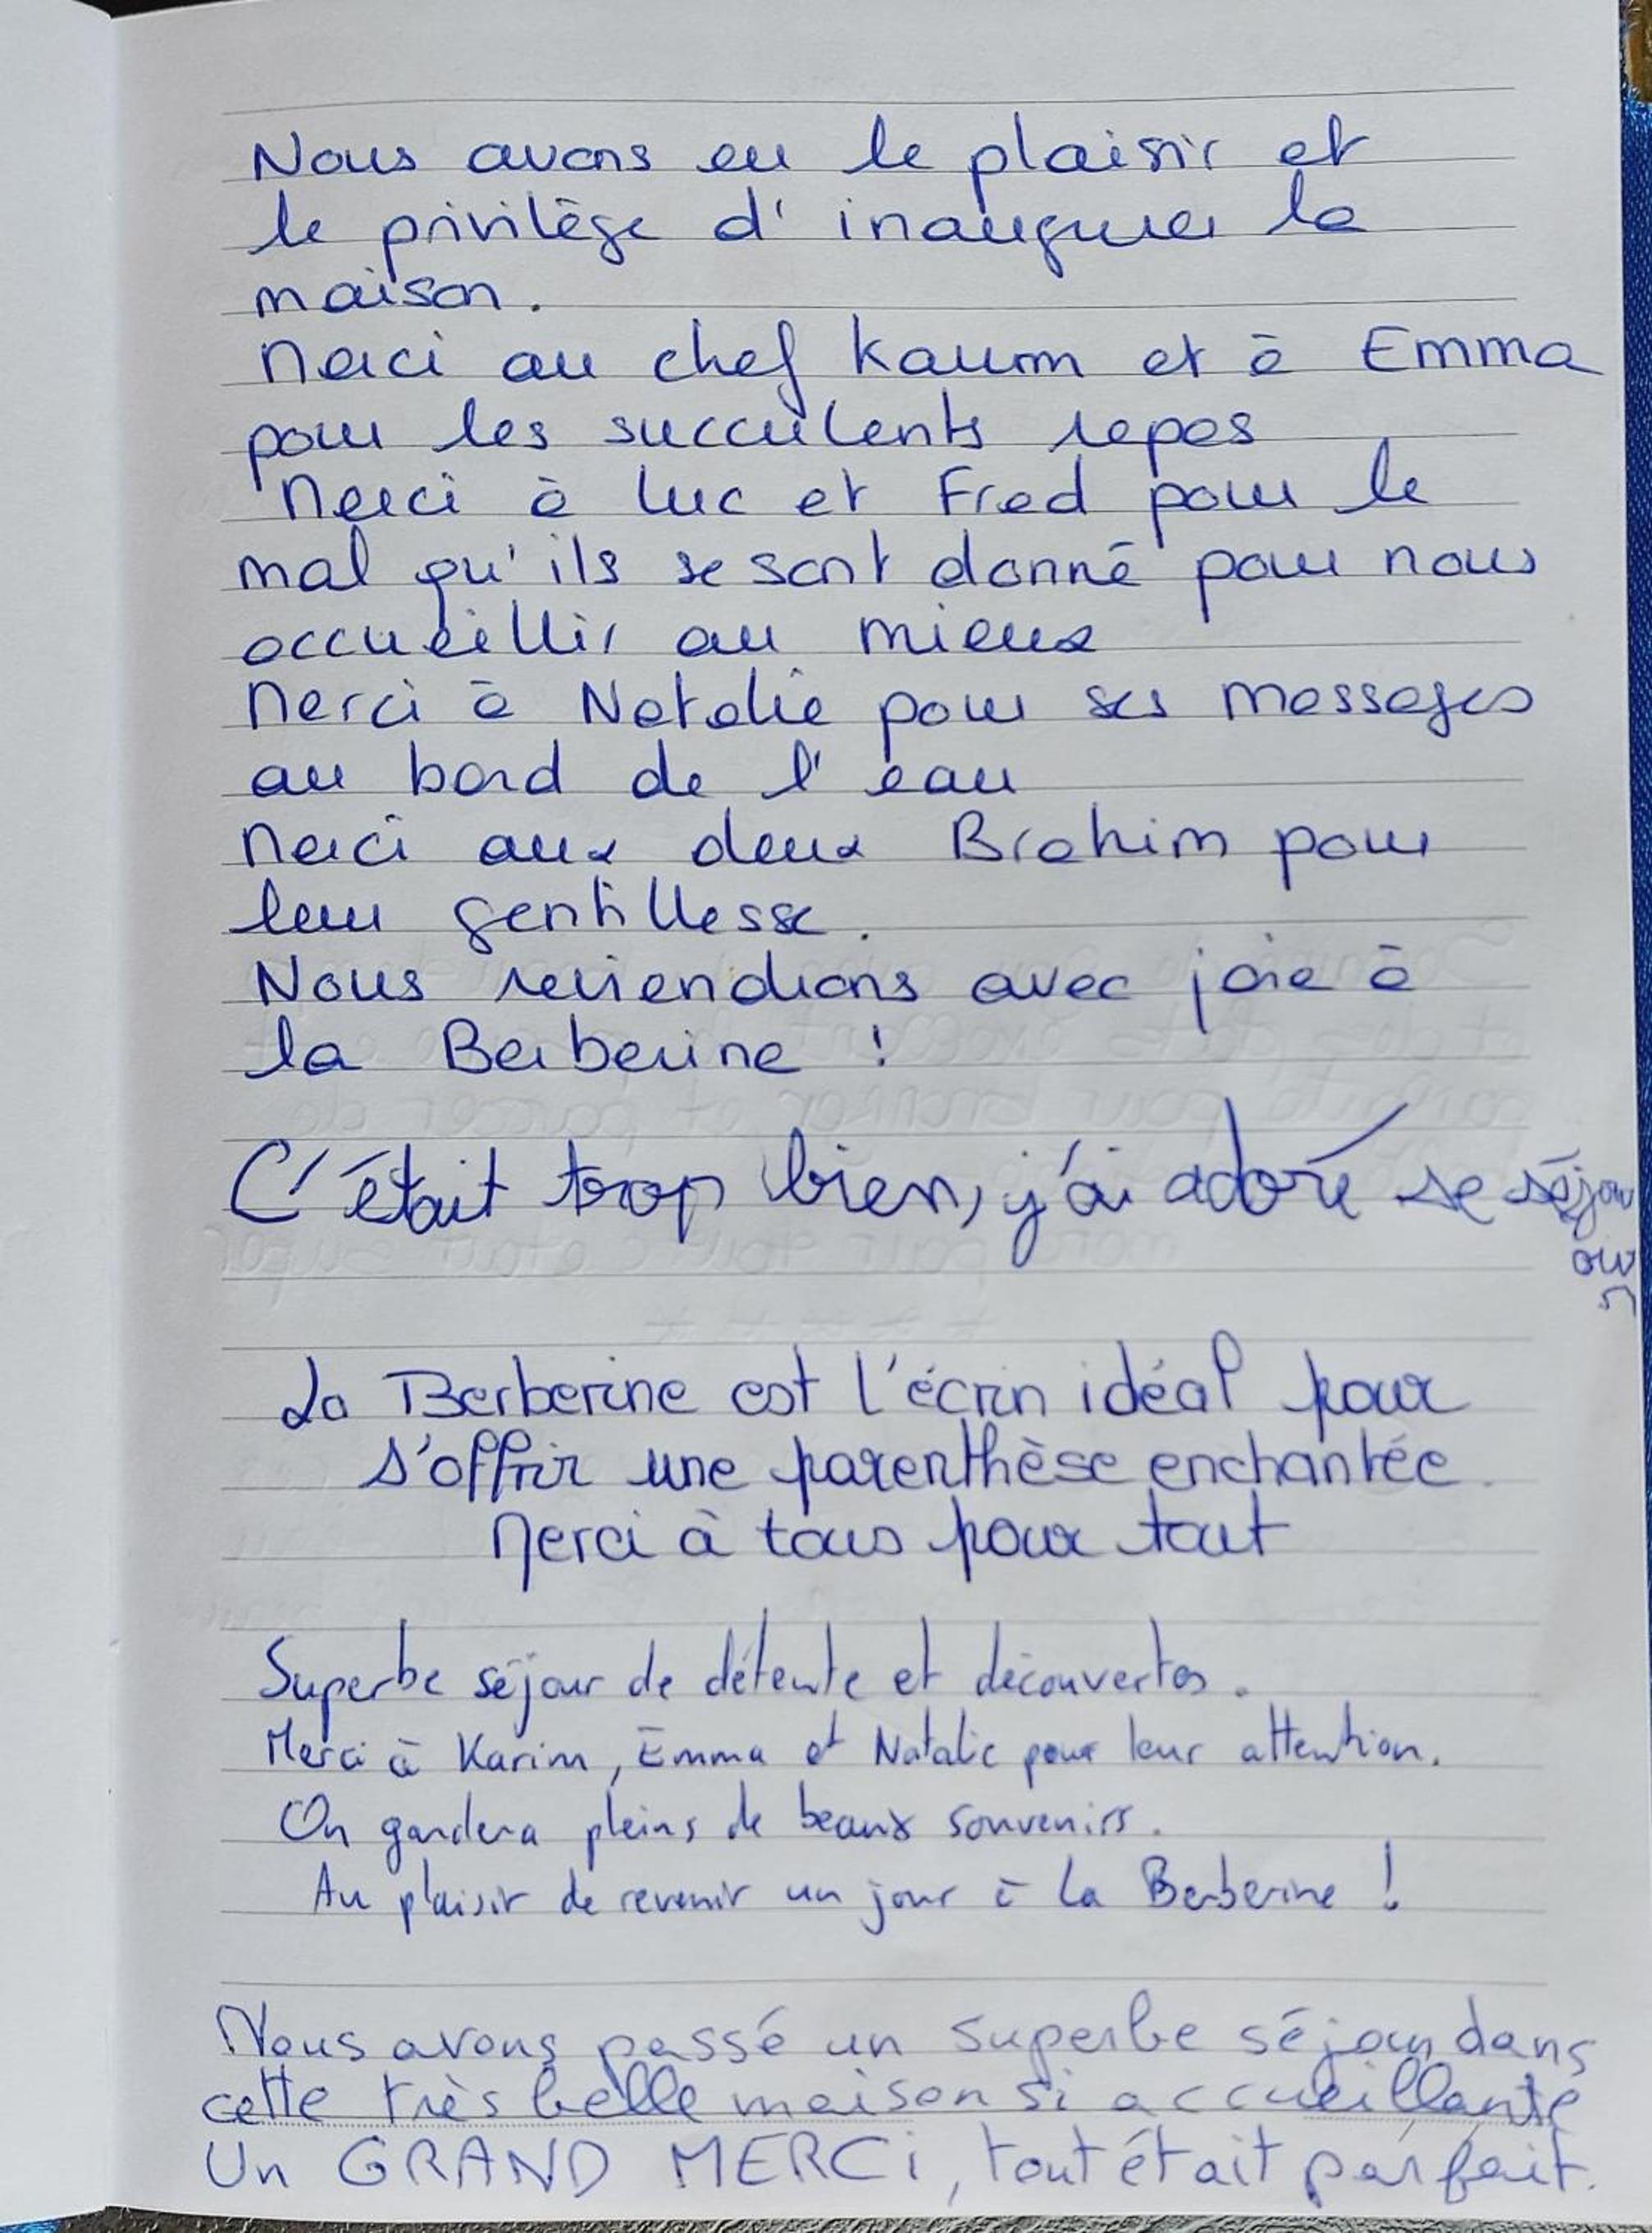 Nous avons eu le plaisir et
le privilège d'inaugurer la
maison.
Merci au chef Karim et à Emma
pour les succulents repas
Merci à Luc et Fred pour le
mal qu'ils se sont donné pour nous
accueillir au mieux
Merci à Natalie pour ses massages
au bord de l'eau
Merci aux deux Brahim pour
leur gentillesse.
Nous reviendrons avec joie à
la Berberine !
C'était trop bien, j'ai adoré se séjour
La Berberine est l'écrin idéal pour
s'offrir une parenthèse enchantée.
Merci à tous pour tout
Superbe séjour de détente et découvertes.
Merci à Karim, Emma et Natalie pour leur attention.
On gardera pleins de beaux souvenirs.
Au plaisir de revenir un jour à la Berberine !
Nous avons passé un superbe séjour dans
cette très belle maison si accueillante
Un GRAND MERCi, tout était parfait.